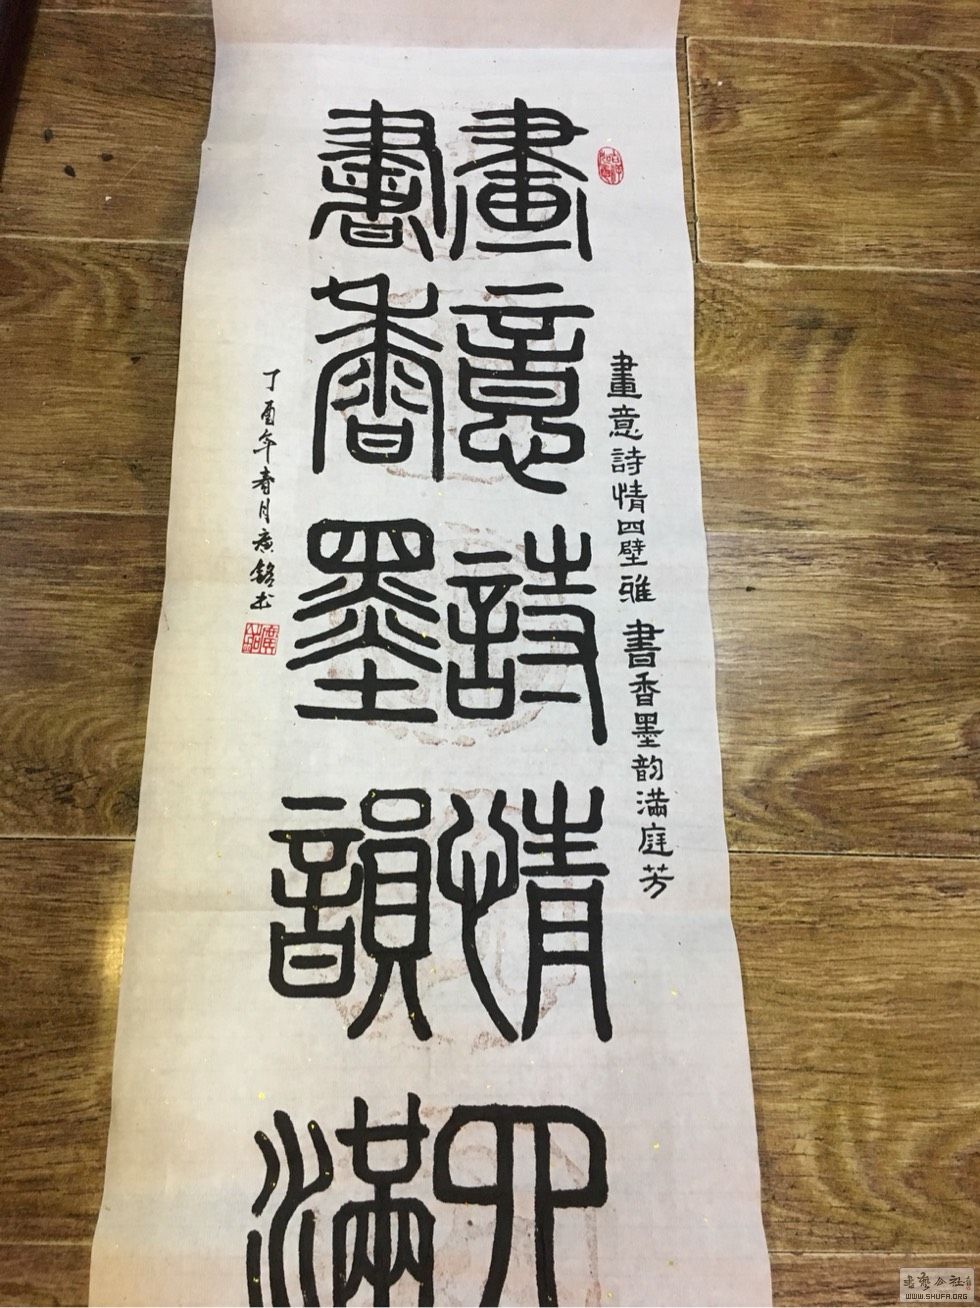 畫意詩情四壁雅 書香墨韵满庭芳
畫意詩情四
書香墨韻滿
丁酉年春月廣銘书
WWW.SHUFA.ORG